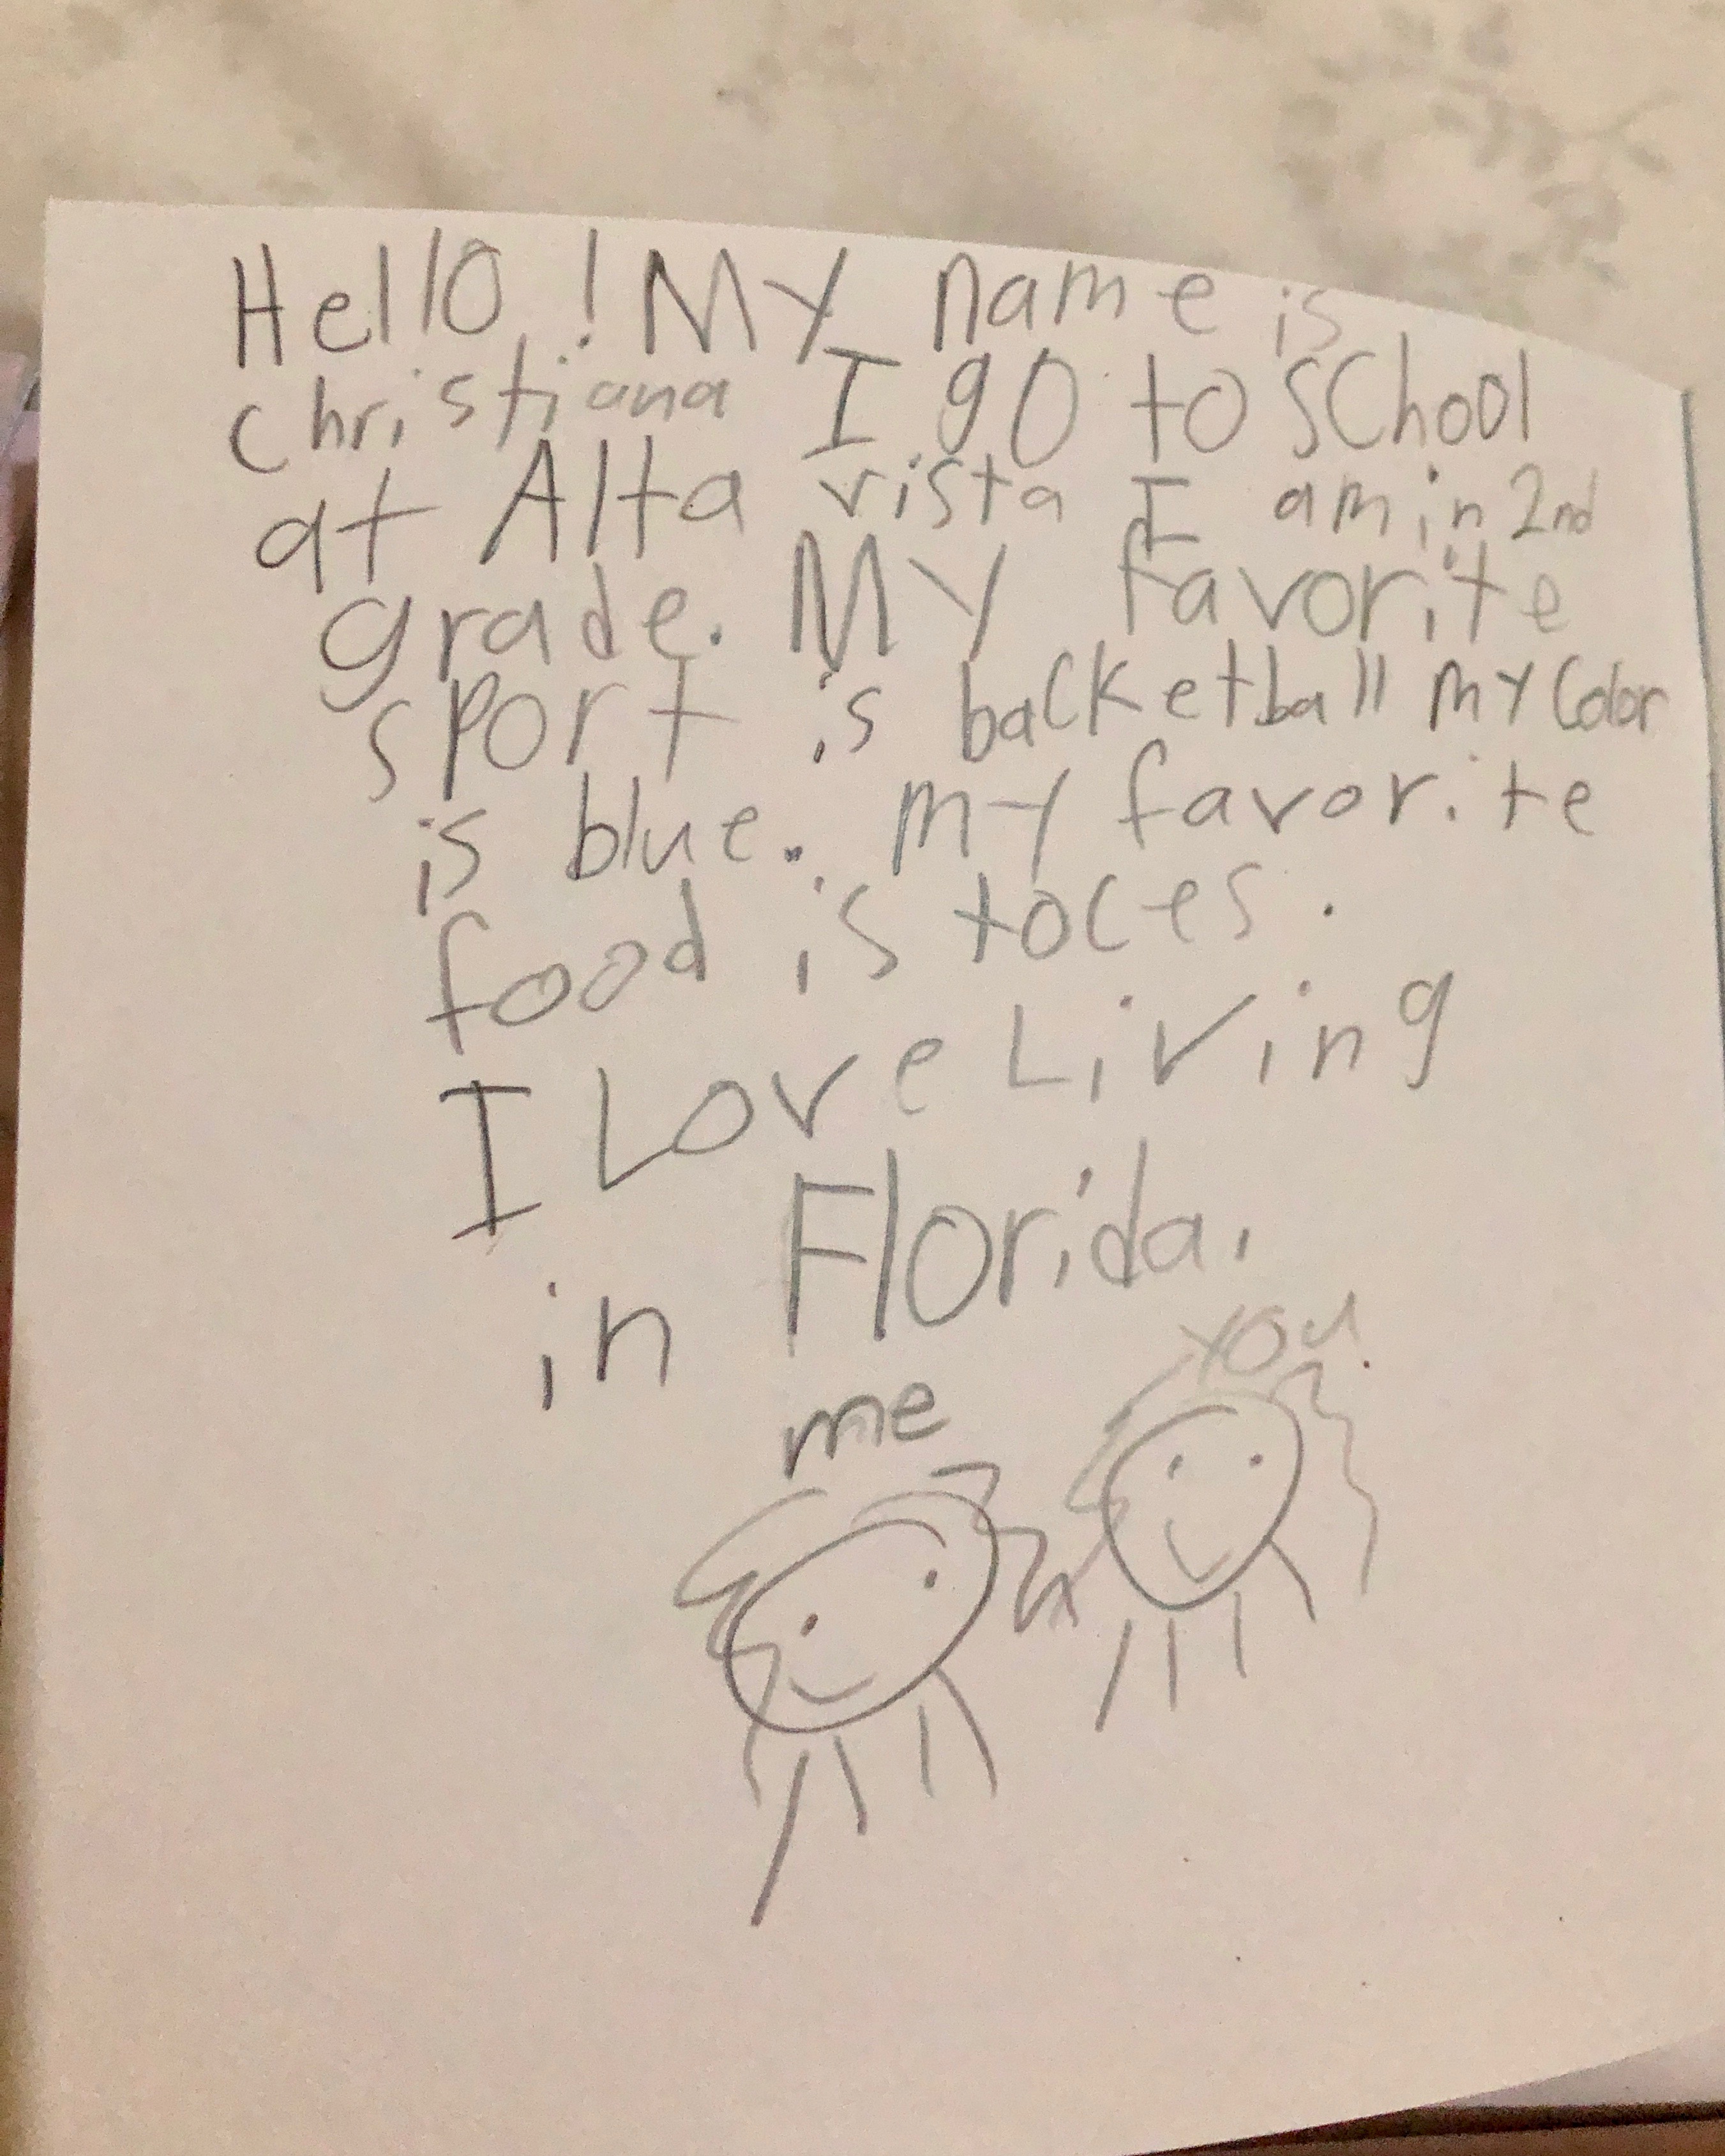 Hello! My name is
christiana I go to school
at Alta vista I am in 2nd
grade. My favorite
sport is backetball my color
is blue. my favorite
food is toces.
I Love Living
in Florida.
me you